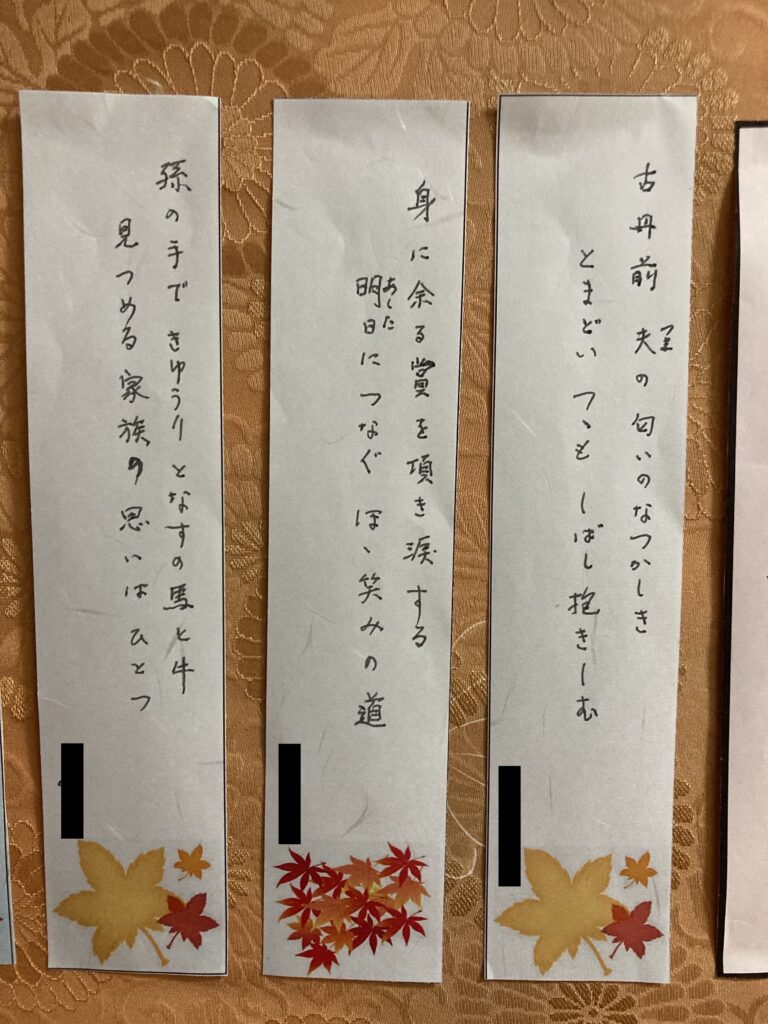 古丹前 夫の匂いのなつかしき
とまどいつゝもしばし抱きしむ
身に余る賞を頂き涙する
明日につなぐほゝ笑みの道
あした
孫の手できゅうりとなすの馬と牛
見つめる家族の思いはひとつ